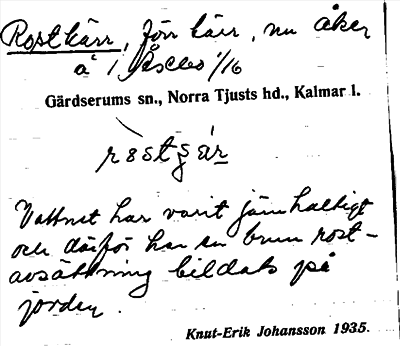 Rostkärr, förr kärr, nu åker
å 1/16
Gärdserums sn., Norra Tjusts hd., Kalmar l.
Vattnet har varit järnhaltigt
och därför har en brun rost-
avsättning bildats på
jorden.
Knut-Erik Johansson 1935.